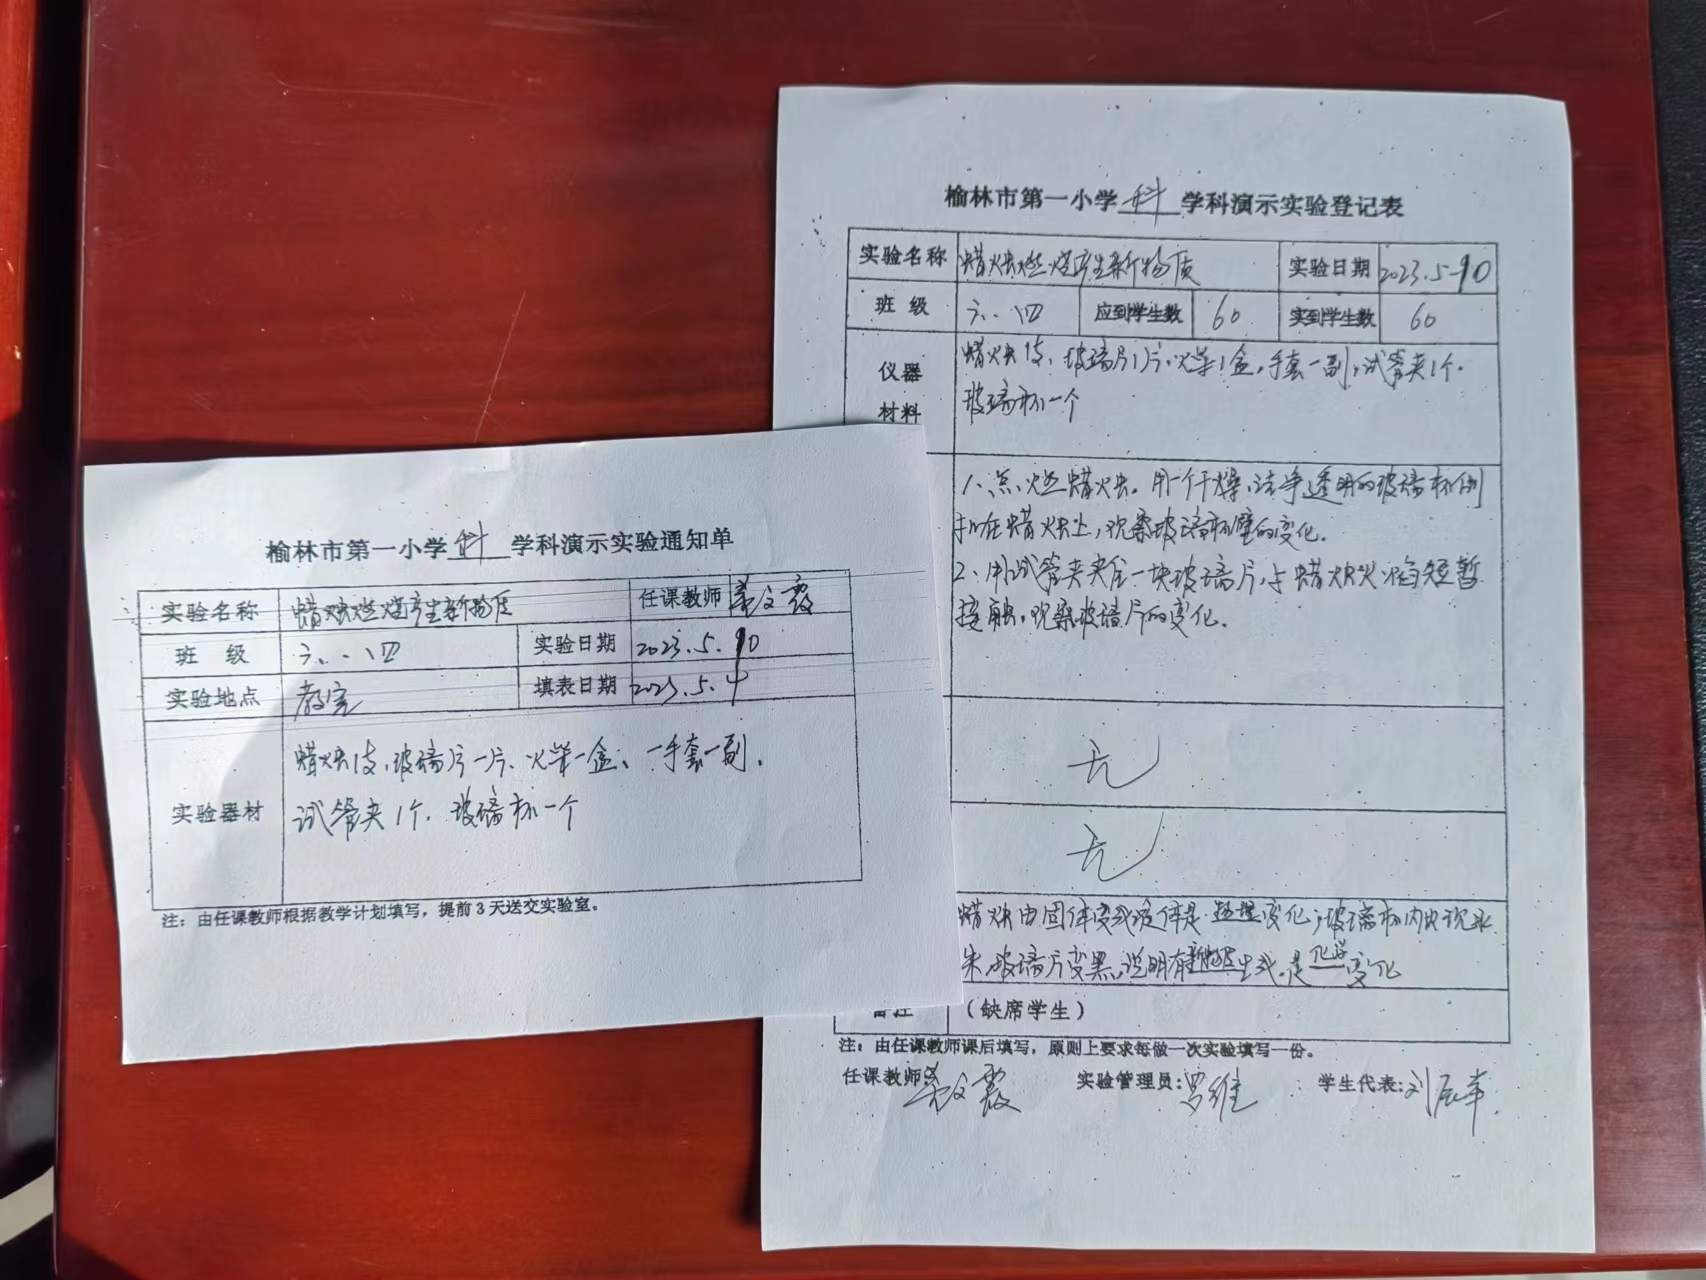 榆林市第一小学 科 学科演示实验通知单
实验名称 蜡烛燃烧产生新物质 任课教师
班 级 六.四 实验日期 2023.5.10
实验地点 教室 填表日期 2023.5.4
蜡烛1支,玻璃片一片、火柴一盒、手套一副,
实验器材 试管夹1个. 玻璃杯一个
注:由任课教师根据教学计划填写,提前3天送交实验室。
榆林市第一小学 科 学科演示实验登记表
实验名称 蜡烛燃烧产生新物质 实验日期 2023.5.10
班 级 六.四 应到学生数 60 实到学生数 60
仪器 蜡烛1支,玻璃片1片,火柴1盒,手套一副,试管夹1个.
材料 玻璃杯一个
1、点燃蜡烛。用一个干燥、洁净透明的玻璃杯倒
扣在蜡烛上,观察玻璃杯壁的变化.
2、用试管夹夹住一块玻璃片,与蜡烛火焰短暂
接触,观察玻璃片的变化.
无
无
蜡烛由固体变成液体是 物理 变化;玻璃杯内出现水
珠,玻璃片变黑,说明有新物质生成,是化学变化
备注 (缺席学生)
注:由任课教师课后填写,原则上要求每做一次实验填写一份。
任课教师: 实验管理员:罗维 学生代表:刘